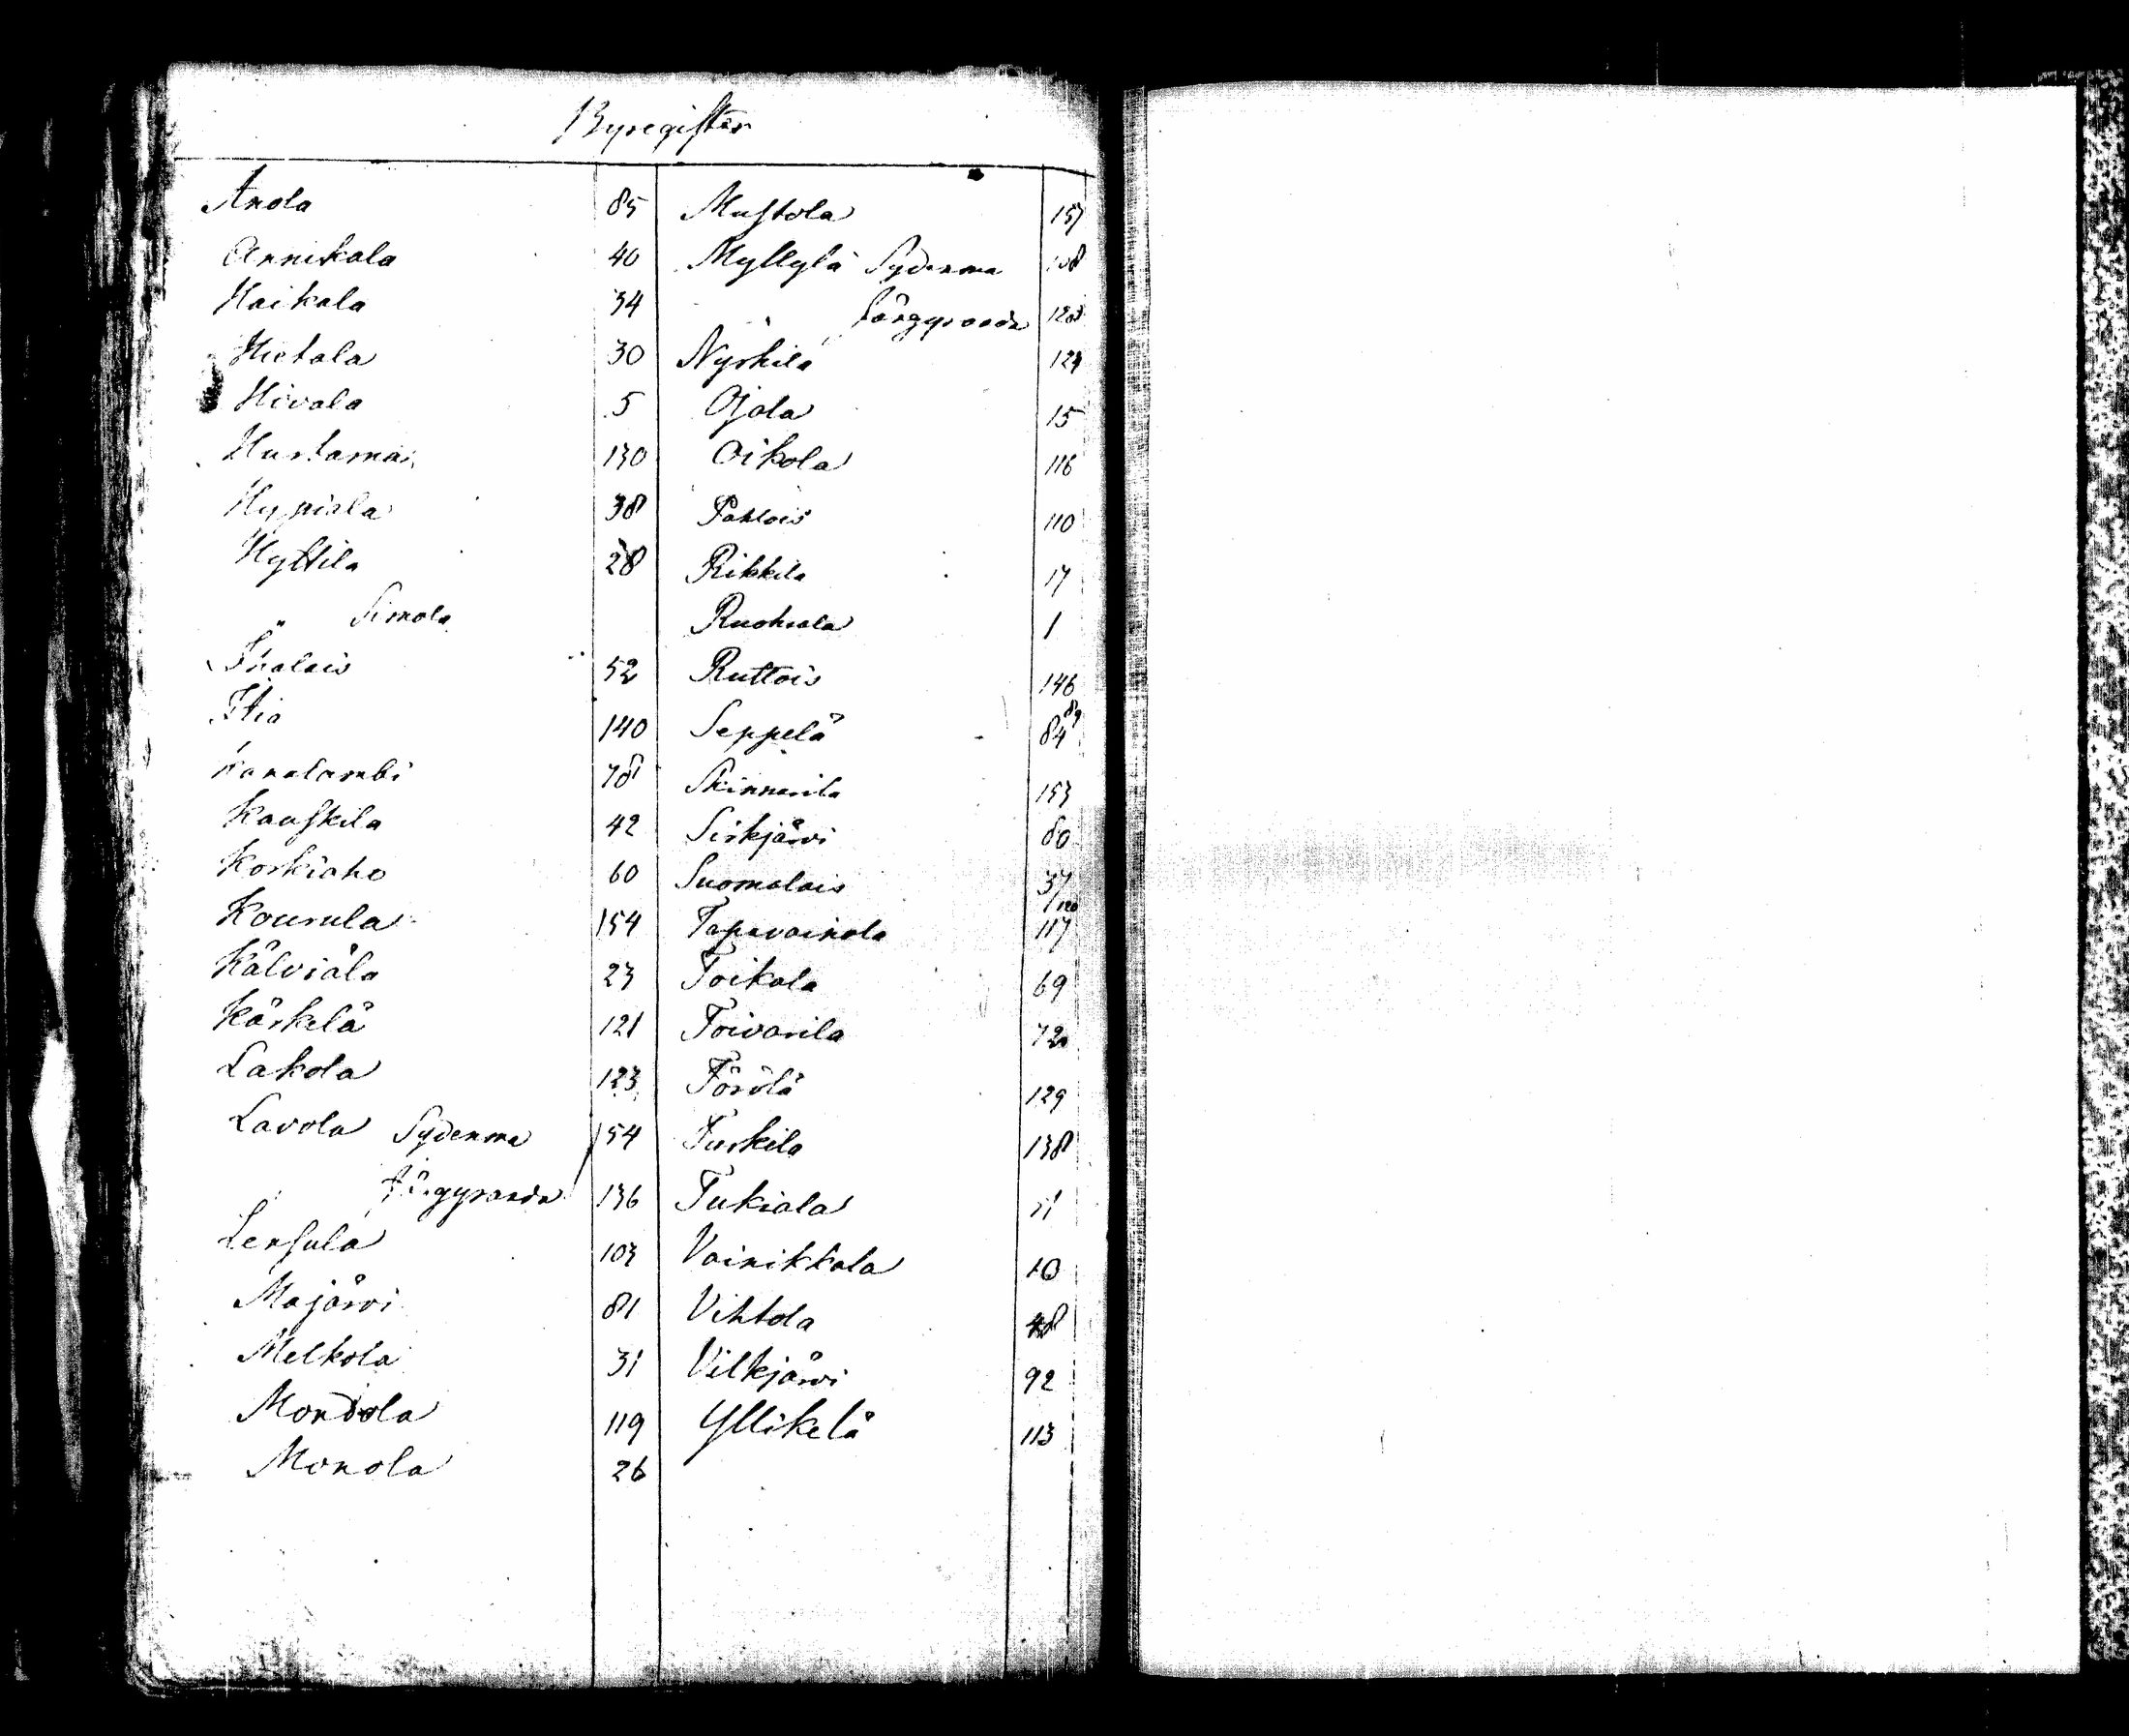 Byregister
Anola 85
Annikala 40
Haikala 34
Hietala 30
Hivala 5
Hurtamai 130
Hyppiälä 38
Hyttilä 28
" Simola
Ihalais 52
Itiä 140
Kanalambi 78
Kauskila 42
Korkiaho 60
Kourula 154
Kälviälä 23
Kärkelä 121
Lakola 123
Lavola Sydenma 154
Järgyranda 136
Lensula 103
Majärvi 81
Melkola 31
Mondola 119
Monola 26
Mustola 157
Myllylä Sydenma 108
" Järgyranda
Nyrkilä 124
Ojala 15
Oikola 116
Partois 110
Rikkilä 17
Ruohiala 1
Ruttois 146
Seppelä 84 89
Skinnarila 153
Sirkjärvi 80
Suomalais 37
Tapavainola 117 120
Toikala 69
Toivarila 72
Törölä 129
Turkila 138
Tukiala 51
Vainikkala 10
Vihtola 48
Vilkjärvi 92
Yllikelä 113